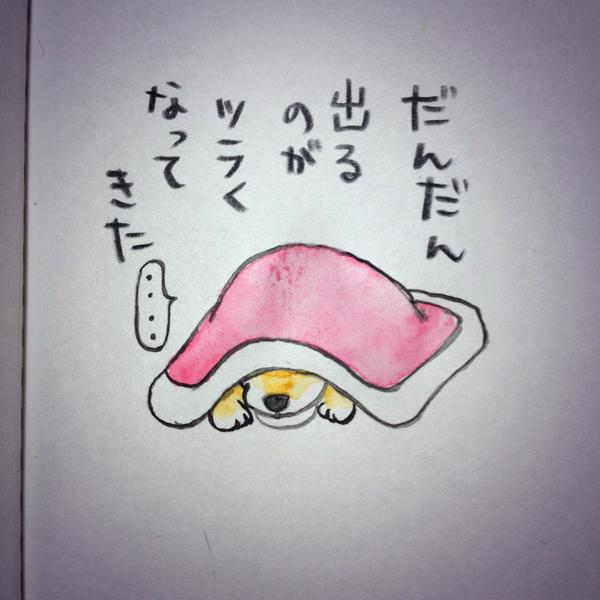 だんだん
出る
のが
ツラく
なって
きた
....